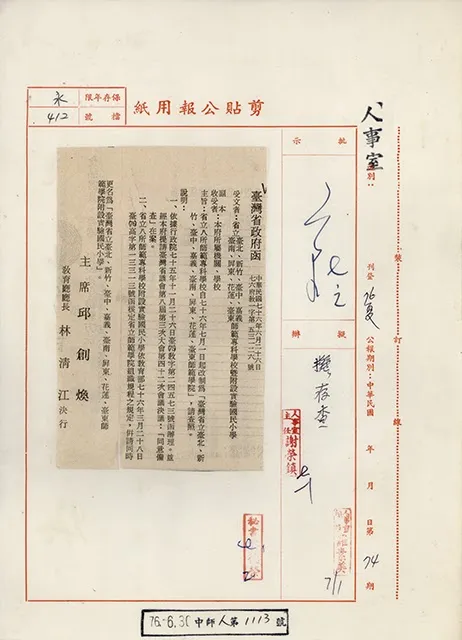 剪貼公報用紙
保存年限 永
檔號 412
人事室
別：
刊登 76夏 公報期別：中華民國 年 月 日第 74 期
裝訂線
批示
擬辦
擬存查
人事室主任 謝榮鎮
7/1
臺灣省政府函
中華民國七十六年六月二十六日
受文者：省立臺北、新竹、臺中、嘉義
臺南、屏東、花蓮、臺東師範專科學校暨附設實驗國民小學
副本收受者：本府所屬機關、學校
主旨：省立八所師範專科學校自七十六年七月一日起改制為「臺灣省立臺北、新
竹、臺中、嘉義、臺南、屏東、花蓮、臺東師範學院」，請查照。
說明：
一、依據行政院七十五年十一月二十六日臺75教字第二四五七三號函辦理。並
經本府提請臺灣省議會第八屆第三次大會第四十二次會議決議：「同意備
查」在案。
二、省立八所師範專科學校附設實驗國民小學依教育部七十六年三月二十八日
臺76高字第一三三一三號函核定省立師範學院組織規程之規定，併請同時
更名為「臺灣省立臺北、新竹、臺中、嘉義、臺南、屏東、花蓮、臺東師
範學院附設實驗國民小學」。
主席 邱創煥
教育廳廳長 林清江 決行
76.-6.30 中師人第 1113 號